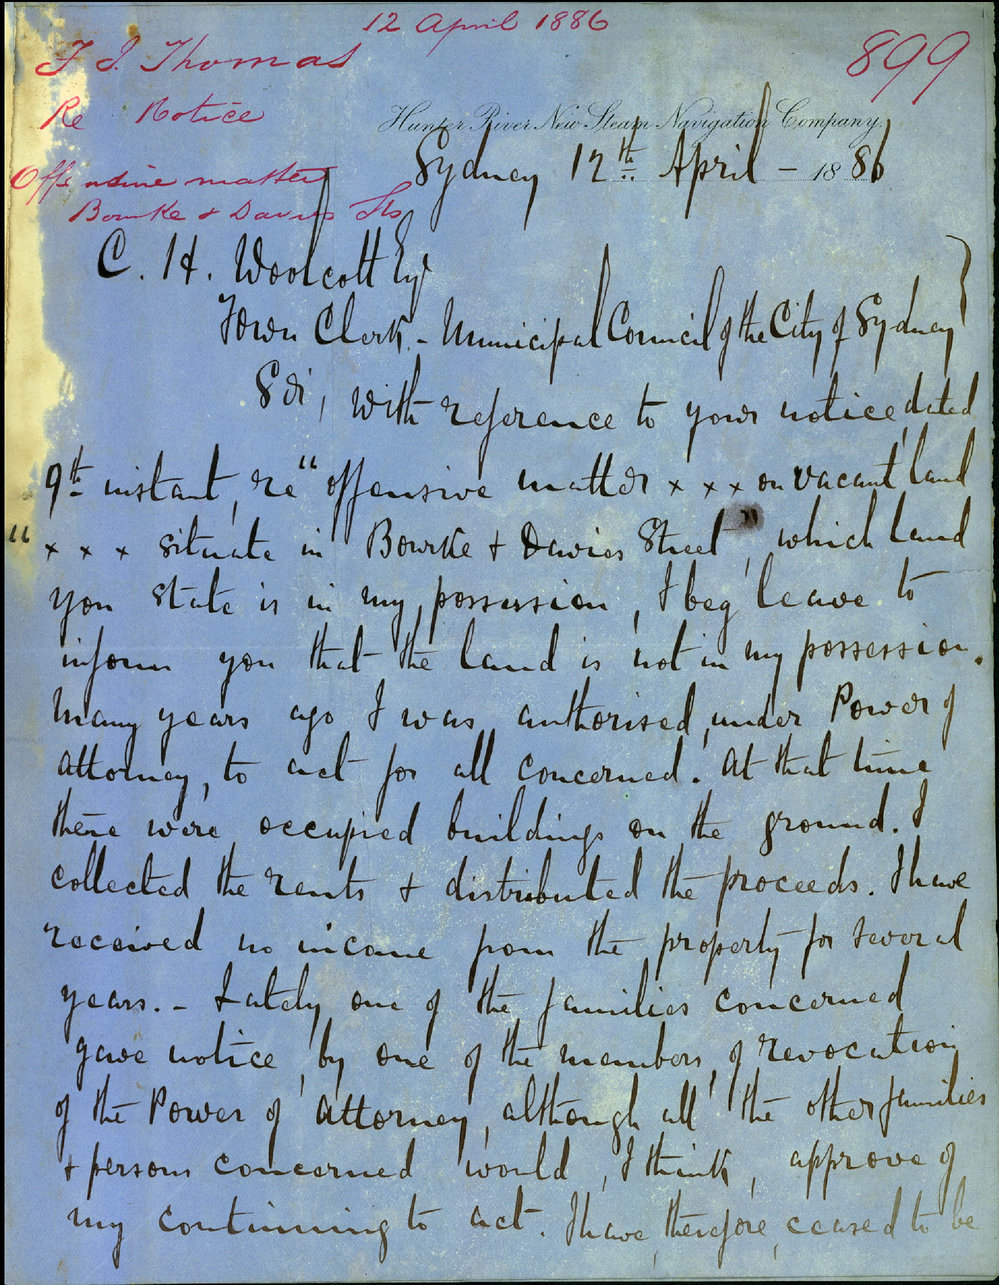 12 April 1886
F J. Thomas
899
Re Notice
Hunter River New Steam Navigation Company,
Offensive matter
Sydney 12th April - 1886
Bourke & Davies Sts
C. H. Woolcott Esq
Town Clerk - Municipal Council of the City of Sydney
Sir, With reference to your notice, dated
9th instant, re "offensive matter x x x on vacant land
" x x x situate in Bourke & Davies Street", which land
you state is in my possession, I beg leave to
inform you that the land is not in my possession.
Many years ago I was authorised, under Power of
Attorney, to act for all concerned. At that time
there were occupied buildings on the ground. I
collected the rents & distributed the proceeds. I have
received no income from the property for several
years. - Lately, one of the families concerned
gave notice, by one of the members, of revocation
of the Power of Attorney, although all the other families
& persons concerned would, I think, approve of
my continuing to act. I have, therefore, ceased to be